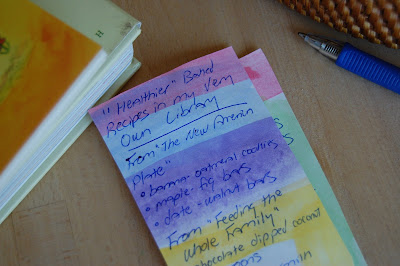 "Healthier" Baked
Recipes in my Very
Own Library
From "The New American
Plate"
• banana oatmeal cookies
• maple fig bars
• date-walnut bars
From "Feeding the
Whole Family"
chocolate dipped coconut
H